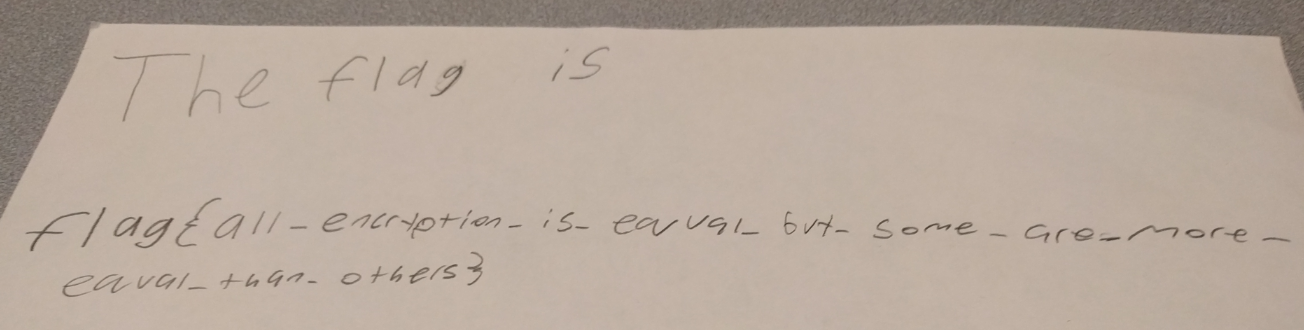 The flag is
flag{all_encryption_is_equal_but_some_are_more_
equal_than_others}